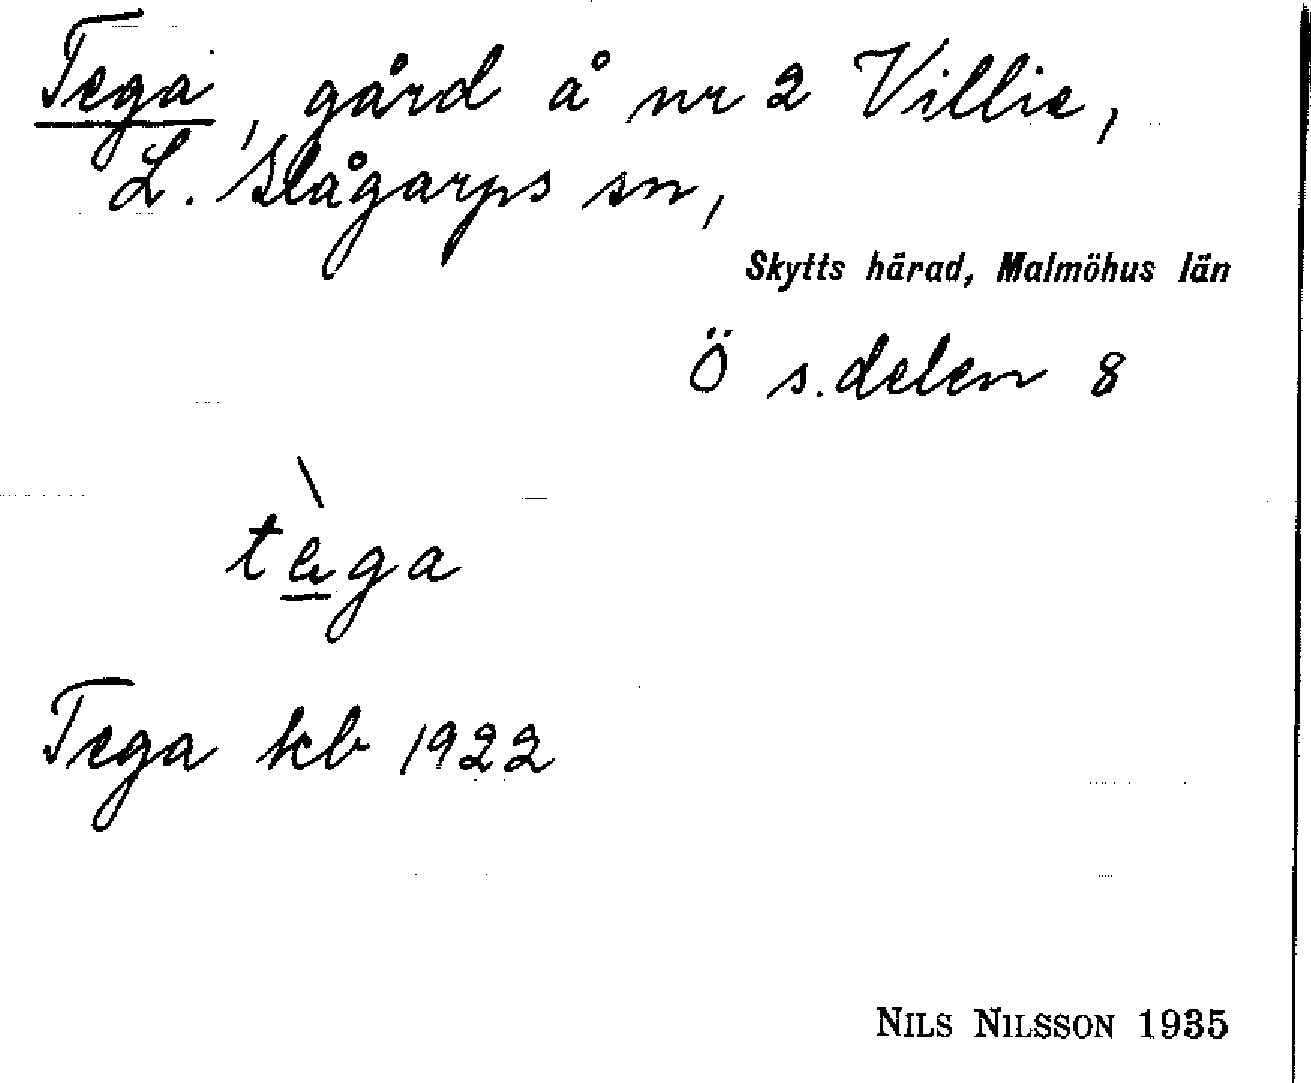 Tega, gård å nr 2 Villie,
L. Slågarps sn,
Skytts härad, Malmöhus län
Ö s. delen 8
tega
Tega kb 1922
NILS NILSSON 1935